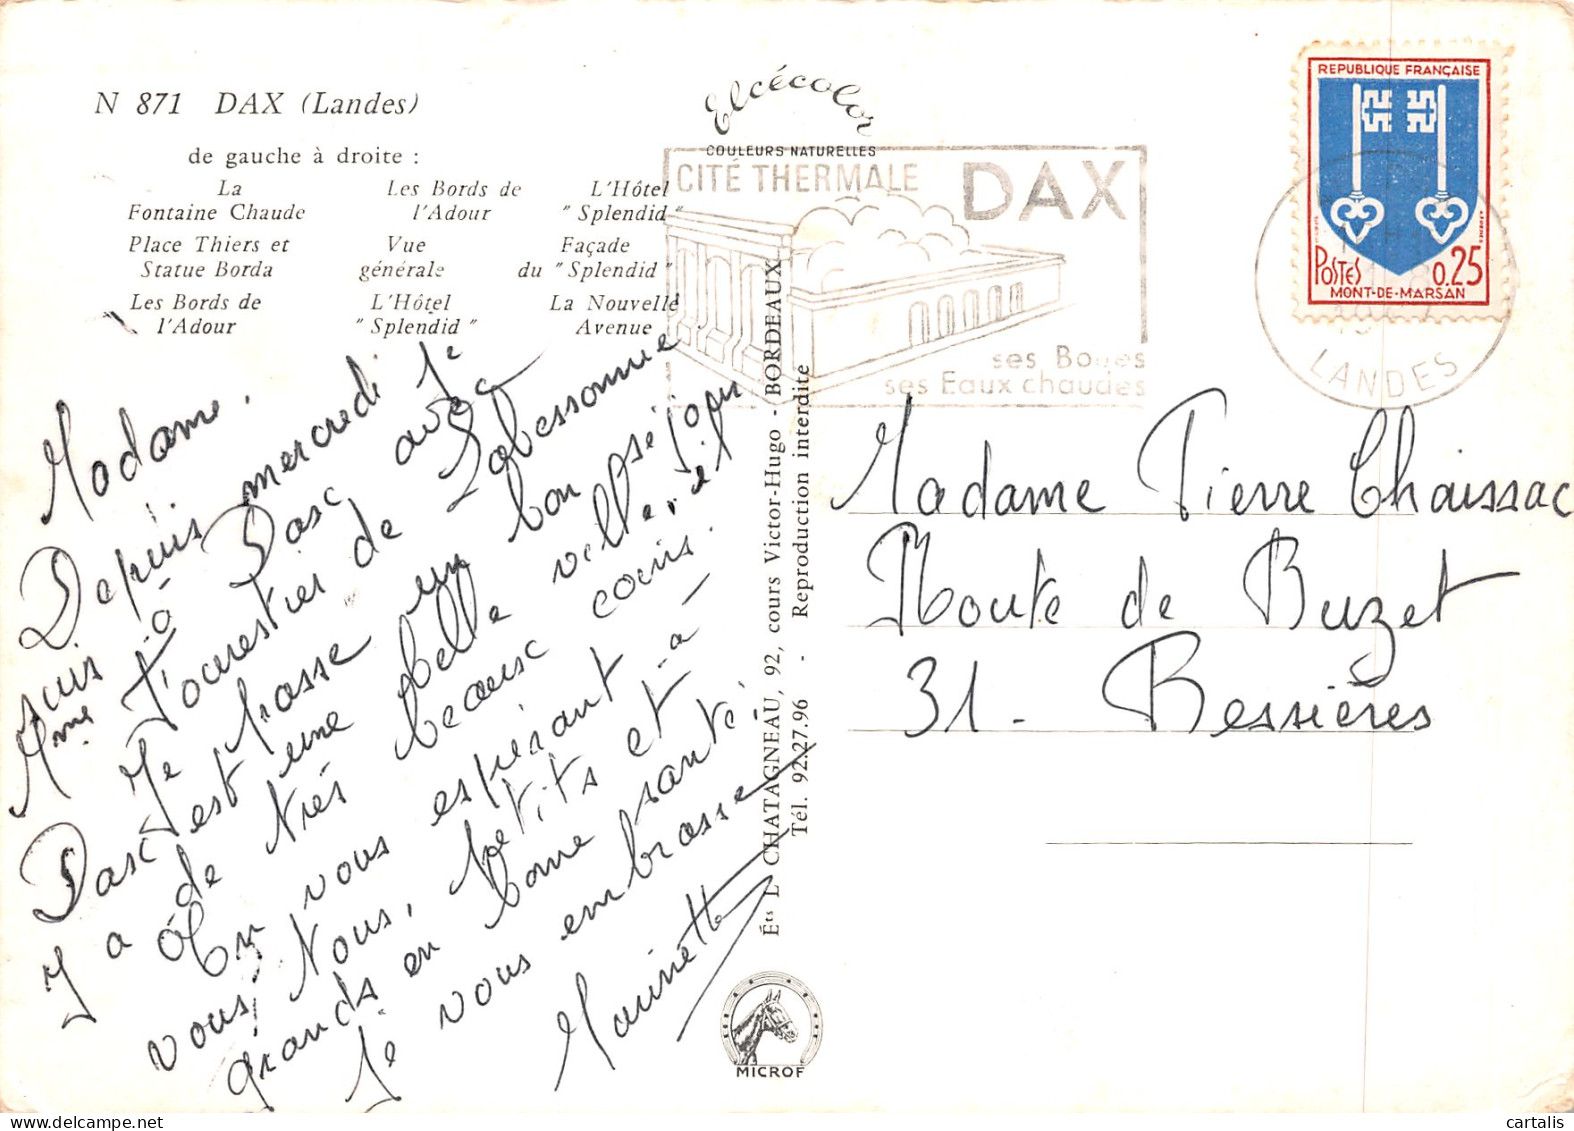 N 871 DAX (Landes)
de gauche à droite :
La Fontaine Chaude
Les Bords de l'Adour
L'Hôtel "Splendid"
Place Thiers et Statue Borda
Vue générale
Façade du "Splendid"
Les Bords de l'Adour
L'Hôtel "Splendid"
La Nouvelle Avenue
Elcécolor
COULEURS NATURELLES
CITÉ THERMALE DAX
ses Boues
ses Eaux chaudes
REPUBLIQUE FRANÇAISE
POSTES 0,25
MONT-DE-MARSAN
LANDES
Madame,
Depuis mercredi je
suis à Dax avec
Mme Fourestier de Labessonnie
Je passe un bon séjour
Dax est une belle ville, il
y a de très beaux coins.
En vous espérant -a-
vous, Nous, petits et
grands en bonne santé;
Je vous embrasse
Marinette
Éts L. CHATAGNEAU, 92, cours Victor-Hugo - BORDEAUX
Tél. 92.27.96 - Reproduction interdite
MICROF
Madame Pierre Chaissac
Route de Buzet
31 - Bessières
cartalis